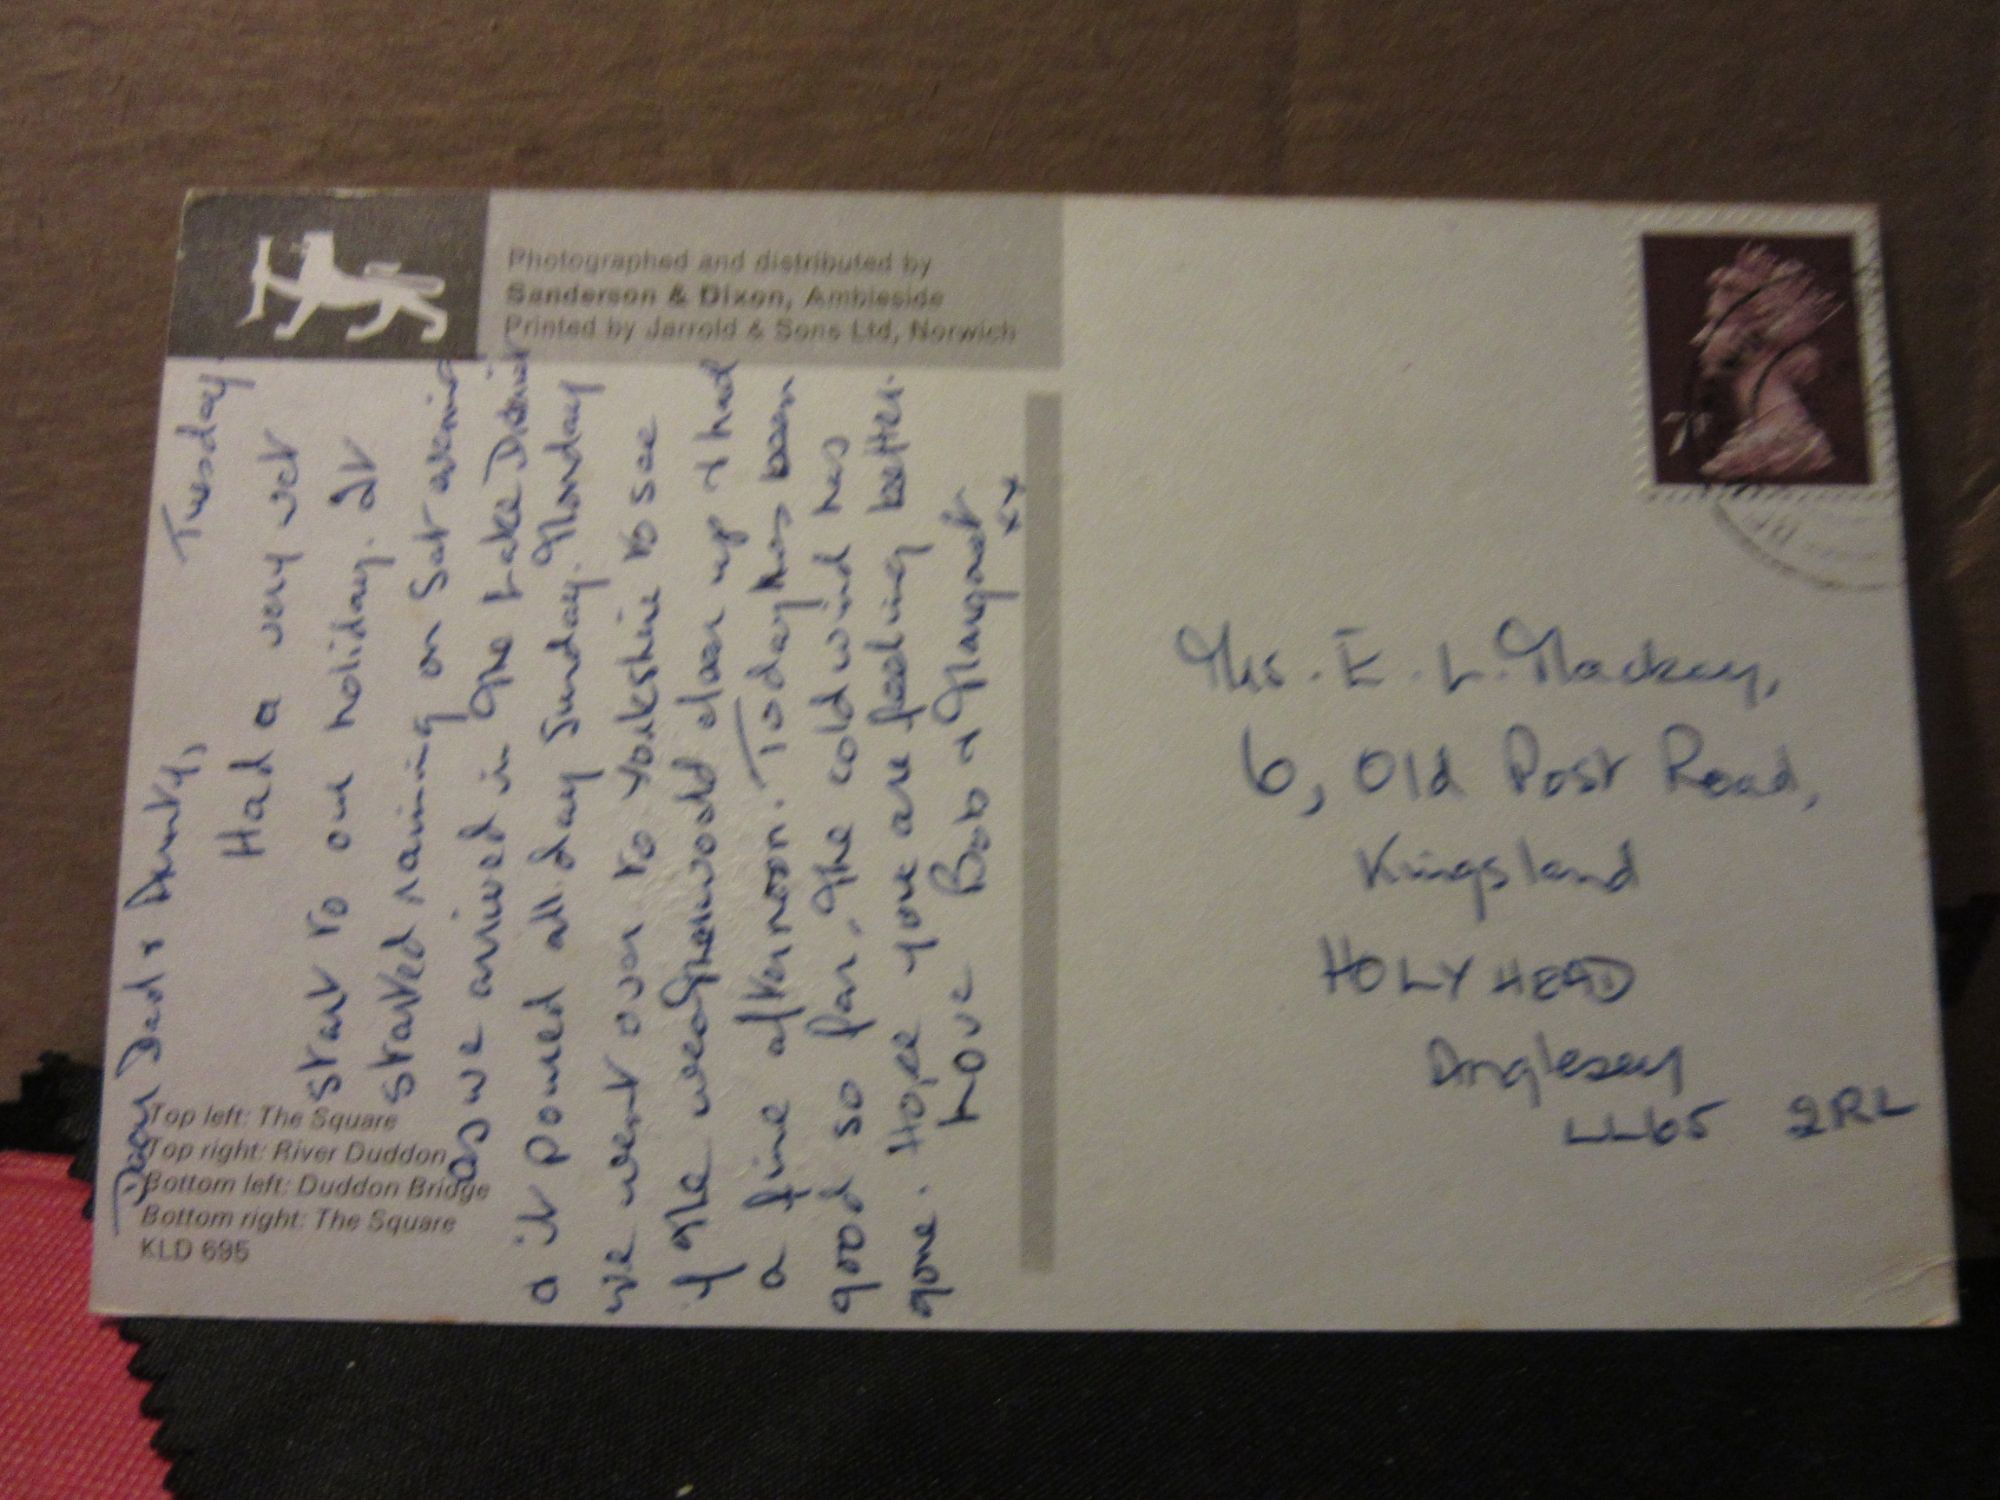 Photographed and distributed by
Sanderson & Dixon, Ambleside
Printed by Jarrold & Sons Ltd, Norwich
Tuesday
Dear Dad & Aunty,
Had a very wet
start to our holiday. It
started raining on Sat evening
as we arrived in the Lake District
& it poured all day Sunday. Monday
we went over to Yorkshire to see
if the weather would clear up & had
a fine afternoon. Today has been
good so far, the cold wind has
gone. Hope you are feeling better.
Love Bob & Margaret
xx
Top left: The Square
Top right: River Duddon
Bottom left: Duddon Bridge
Bottom right: The Square
KLD 695
Mrs. E. L. Mackay,
6, Old Post Road,
Kingsland
HOLYHEAD
Anglesey
LL65 2RL